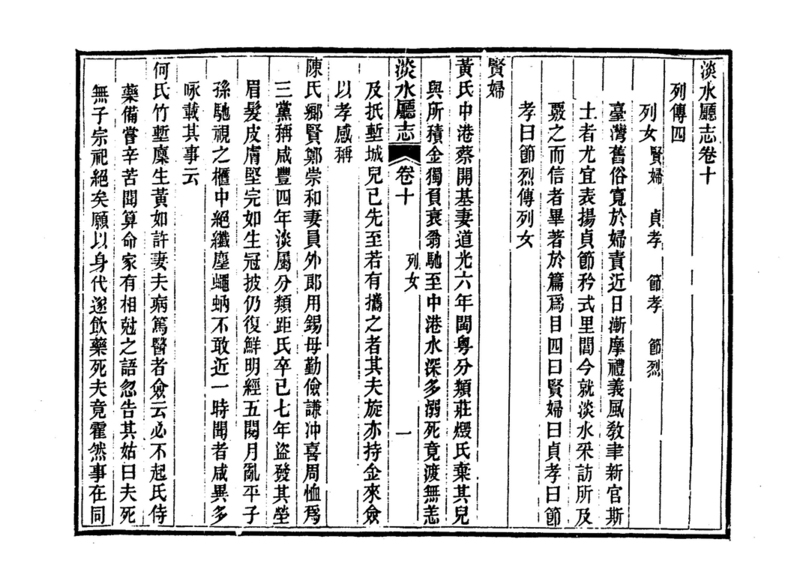 淡水廳志卷十
列傳四
列女 賢婦 貞孝 節孝 節烈
臺灣舊俗寬於婦責近日漸摩禮義風敎聿新官斯
士者尤宜表揚貞節矜式里閭今就淡水采訪所及
覈之而信者畢著於篇爲目四曰賢婦曰貞孝曰節
孝曰節烈傳列女
賢婦
黃氏中港蔡開基妻道光六年閩粤分類莊燬氏棄其兒
與所積金獨負衰翁馳至中港水深多溺死竟渡無恙
淡水廳志 卷十 列女 一
及抵塹城兒已先至若有攜之者其夫旋亦持金來僉
以孝感稱
陳氏鄉賢鄭崇和妻員外郎用錫母勤儉謙冲喜周恤爲
三黨稱咸豐四年淡屬分類距氏卒已七年盜發其塋
眉髮皮膚堅完如生冠披仍復鮮明經五閱月亂平子
孫馳視之櫃中絕纖塵蠅蚋不敢近一時聞者咸異多
咏載其事云
何氏竹塹廩生黃如許妻夫病篤醫者僉云必不起氏侍
藥備嘗辛苦聞算命家有相尅之語忽告其姑曰夫死
無子宗祀絕矣願以身代遂飲藥死夫竟霍然事在同